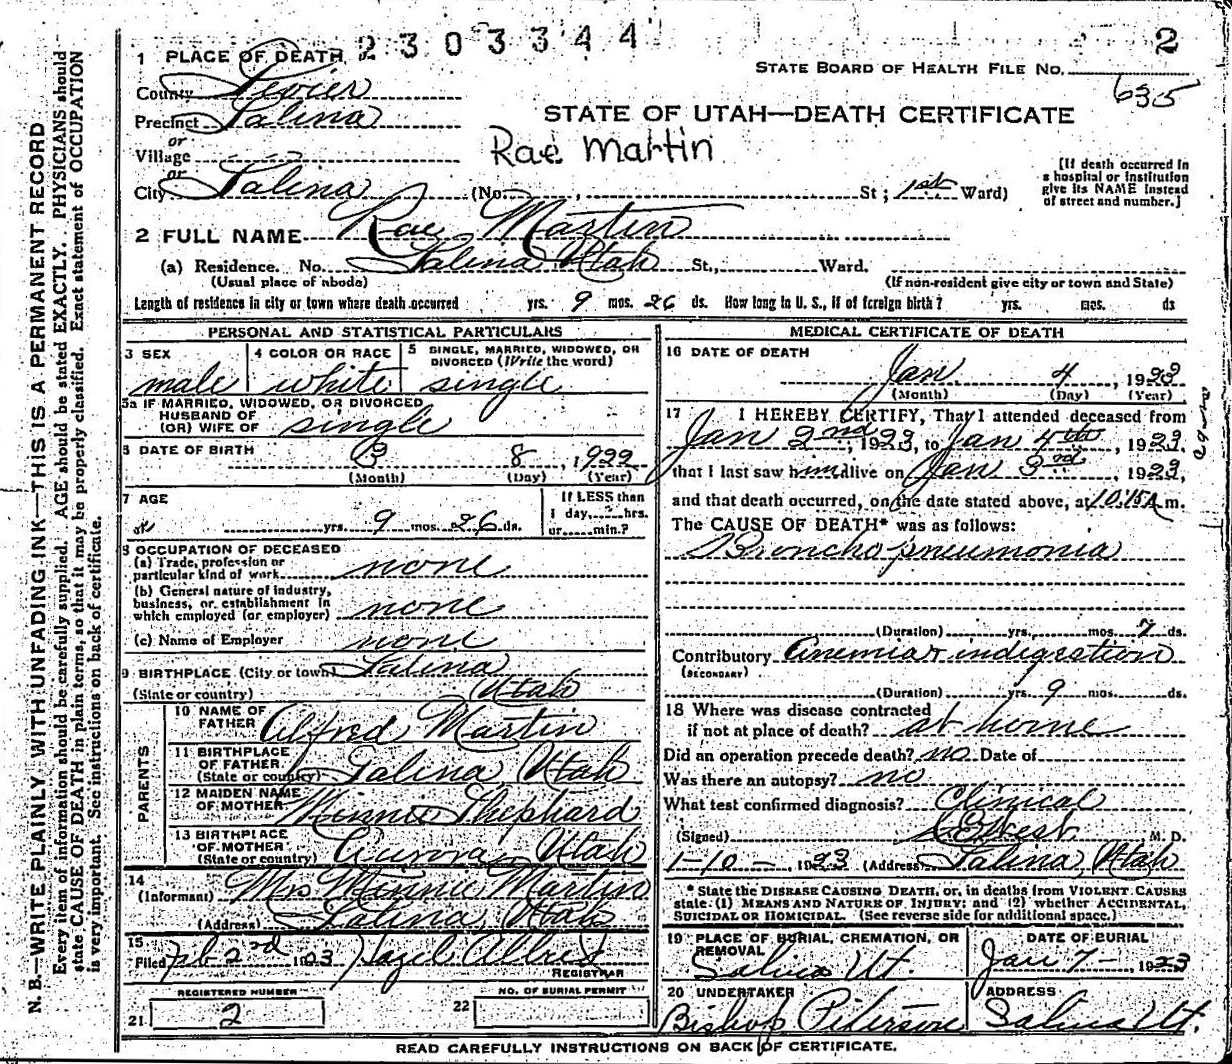 2303344
2
1 PLACE OF DEATH
STATE BOARD OF HEALTH FILE NO.
635
County Sevier
Precinct Salina
STATE OF UTAH—DEATH CERTIFICATE
or
Village
Rae Martin
or
City Salina (No. , St ; 1st Ward)
[If death occurred in
a hospital or institution
give its NAME instead
of street and number.]
2 FULL NAME Rae Martin
(a) Residence. No. Salina Utah St., Ward.
(Usual place of abode) (If non-resident give city or town and State)
Length of residence in city or town where death occurred yrs. 9 mos. 26 ds. How long in U. S., if of foreign birth? yrs. mos. ds
PERSONAL AND STATISTICAL PARTICULARS
3 SEX
male
4 COLOR OR RACE
white
5 SINGLE, MARRIED, WIDOWED, OR
DIVORCED (Write the word)
single
5a IF MARRIED, WIDOWED, OR DIVORCED
HUSBAND OF
(OR) WIFE OF single
6 DATE OF BIRTH 3 8, 1922
(Month) (Day) (Year)
7 AGE
yrs. 9 mos. 26 ds.
If LESS than
1 day, hrs.
or min.?
8 OCCUPATION OF DECEASED
(a) Trade, profession or
particular kind of work none
(b) General nature of industry,
business, or establishment in
which employed (or employer) none
(c) Name of Employer none
9 BIRTHPLACE (City or town) Salina
(State or country) Utah
PARENTS
10 NAME OF
FATHER Alfred Martin
11 BIRTHPLACE
OF FATHER
(State or country) Salina Utah
12 MAIDEN NAME
OF MOTHER Minnie Shephard
13 BIRTHPLACE
OF MOTHER
(State or country) Aurora, Utah
14
(Informant) Mrs Minnie Martin
(Address) Salina, Utah
15
Filed Feb 2nd 1923 Hazel Allred
REGISTRAR
REGISTERED NUMBER
21 2
NO. OF BURIAL PERMIT
22
MEDICAL CERTIFICATE OF DEATH
16 DATE OF DEATH
Jan. 4, 1923
(Month) (Day) (Year)
17 I HEREBY CERTIFY, That I attended deceased from
Jan 2nd, 1923, to Jan 4th, 1923,
that I last saw him alive on Jan 3rd, 1923,
and that death occurred, on the date stated above, at 10:15A m.
The CAUSE OF DEATH* was as follows:
Broncho pneumonia
(Duration) yrs. mos. 7 ds.
Contributory Anemia & indigestion
(SECONDARY)
(Duration) yrs. 9 mos. ds.
18 Where was disease contracted
if not at place of death? at home
Did an operation precede death? no Date of
Was there an autopsy? no
What test confirmed diagnosis? Clinical
(Signed) West M. D.
1-10-, 1923 (Address) Salina, Utah
* State the DISEASE CAUSING DEATH, or, in deaths from VIOLENT CAUSES
state (1) MEANS AND NATURE OF INJURY; and (2) whether ACCIDENTAL,
SUICIDAL or HOMICIDAL. (See reverse side for additional space.)
19 PLACE OF BURIAL, CREMATION, OR
REMOVAL
Salina Ut.
DATE OF BURIAL
Jan 7-, 1923
20 UNDERTAKER
Bishop Peterson
ADDRESS
Salina Ut.
READ CAREFULLY INSTRUCTIONS ON BACK OF CERTIFICATE.
N. B.—WRITE PLAINLY WITH UNFADING INK—THIS IS A PERMANENT RECORD
Every item of information should be carefully supplied. AGE should be stated EXACTLY. PHYSICIANS should
state CAUSE OF DEATH in plain terms, so that it may be properly classified. Exact statement of OCCUPATION
is very important. See instructions on back of certificate.